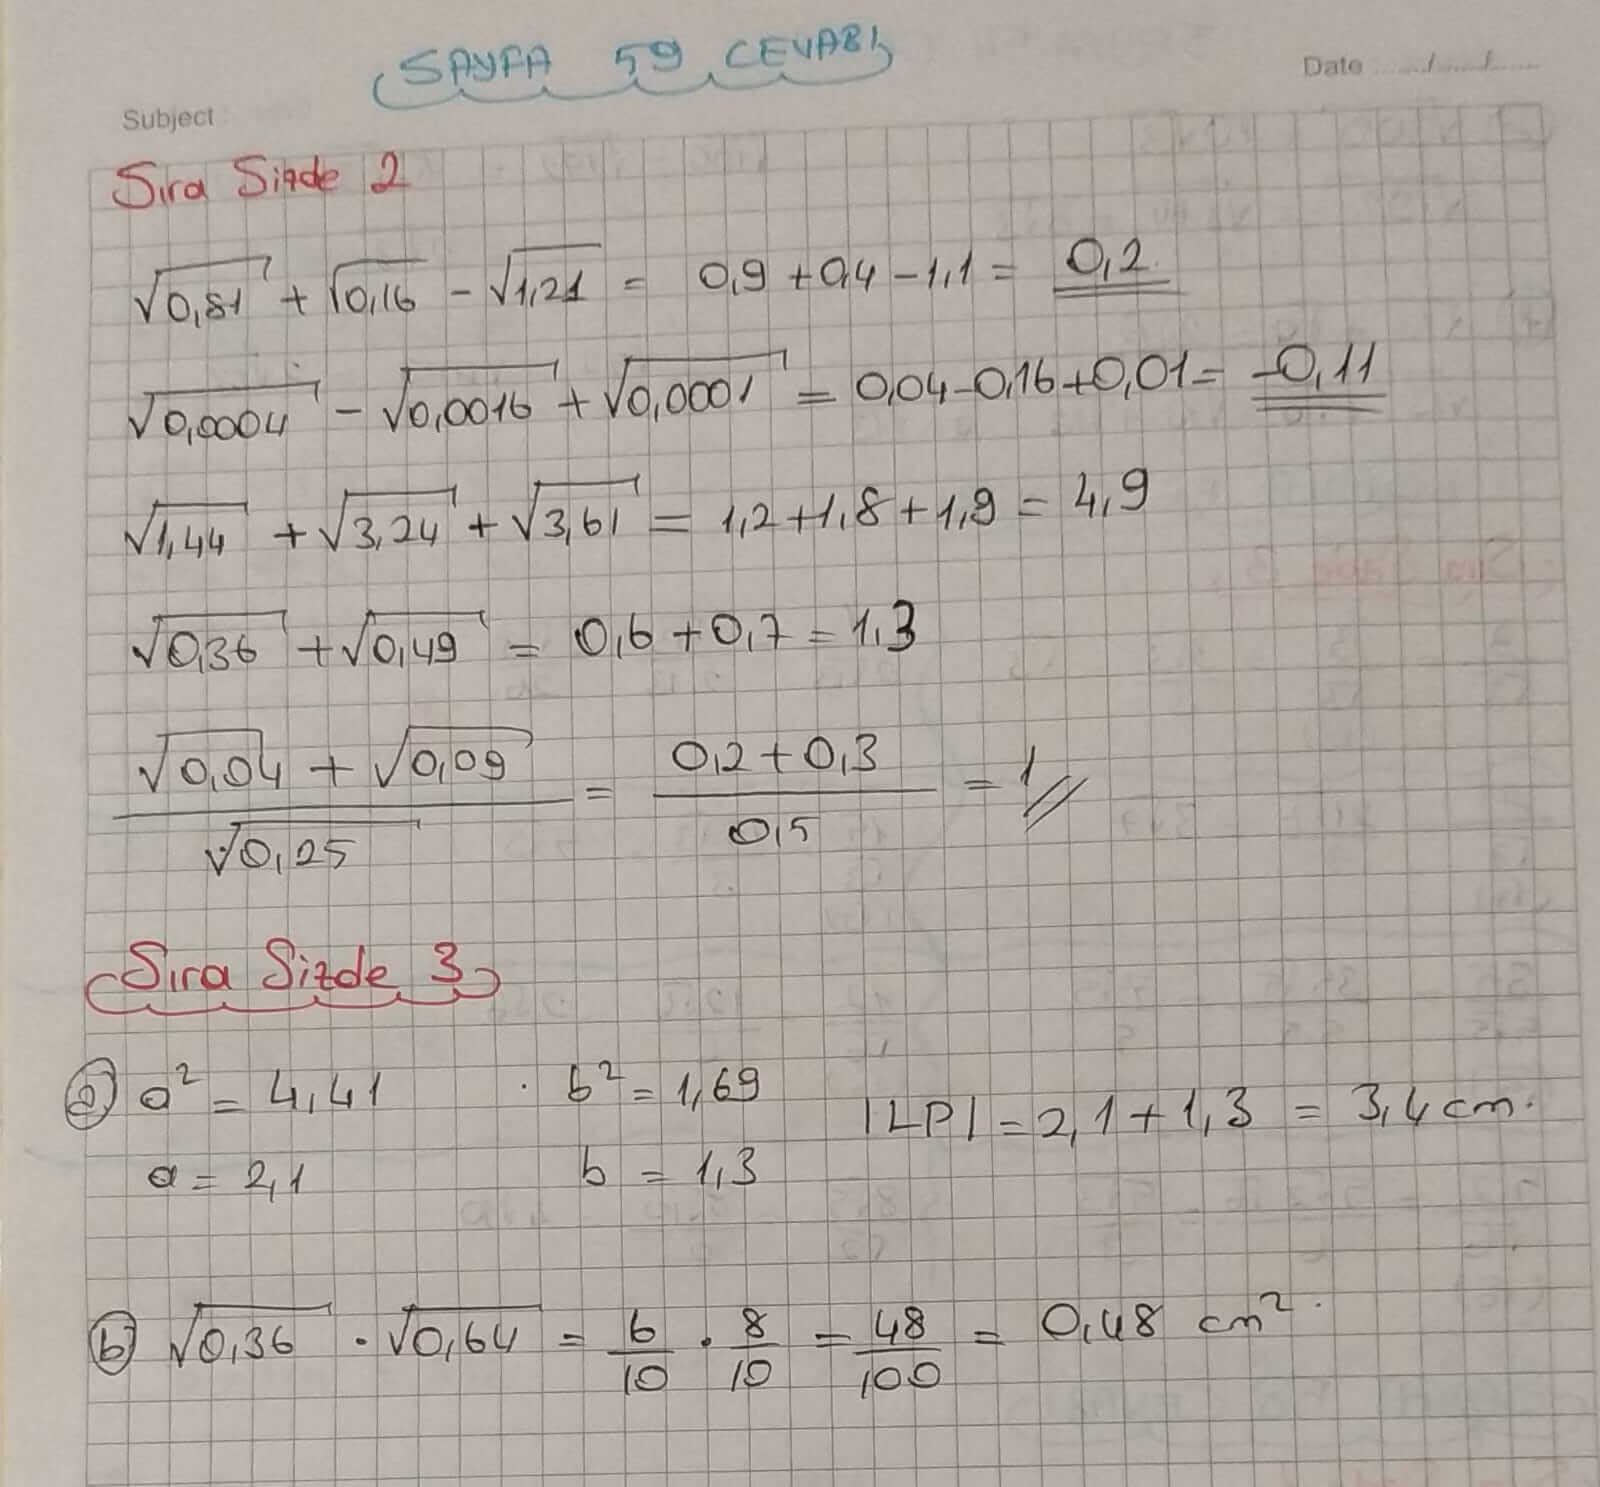 SAYFA 59 CEVABI
Date ....../....../......
Subject :
Sıra Sizde 2
√0,81 + √0,16 - √1,21 = 0,9 + 0,4 - 1,1 = 0,2
√0,0004 - √0,0016 + √0,0001 = 0,04 - 0,16 + 0,01 = -0,11
√1,44 + √3,24 + √3,61 = 1,2 + 1,8 + 1,9 = 4,9
√0,36 + √0,49 = 0,6 + 0,7 = 1,3
√0,04 + √0,09 / √0,25 = 0,2 + 0,3 / 0,5 = 1
Sıra Sizde 3
a) a² = 4,41 . b² = 1,69 |LP| = 2,1 + 1,3 = 3,4 cm.
a = 2,1 b = 1,3
b) √0,36 . √0,64 = 6/10 . 8/10 = 48/100 = 0,48 cm².